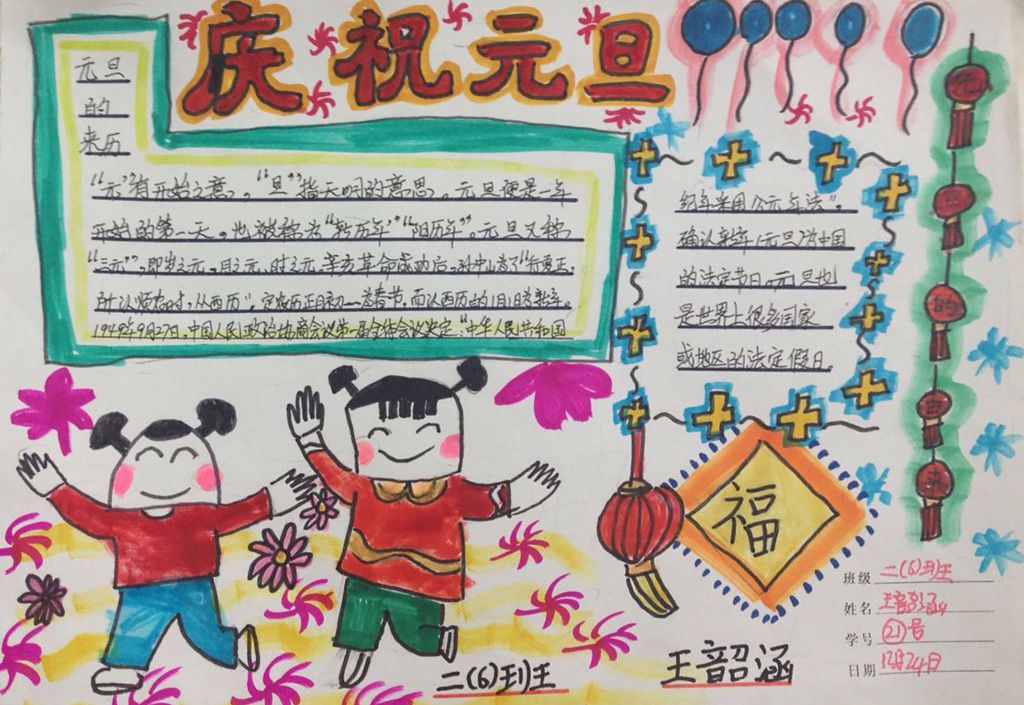 庆祝元旦
元旦
的
来历
“元”有开始之意，“旦”指天明的意思。元旦便是一年
开始的第一天。也被称为“新历年”“阳历年”。元旦又称
“三元”，即岁之元、月之元、时之元。辛亥革命成功后，孙中山为了“行夏正，
所以顺农时，从西历”，定农历正月初一为春节，而以西历的1月1日为新年。
1949年9月27日，中国人民政治协商会议第一届全体会议决定：“中华人民共和国
纪年采用公元年法”。
确认新年1元旦为中国
的法定节日。元旦也
是世界上很多国家
或地区的法定假日。
元
旦
的
由
来
福
班级 二(6)班王
姓名 王韶涵
学号 21号
日期 12月24日
二(6)班王
王韶涵